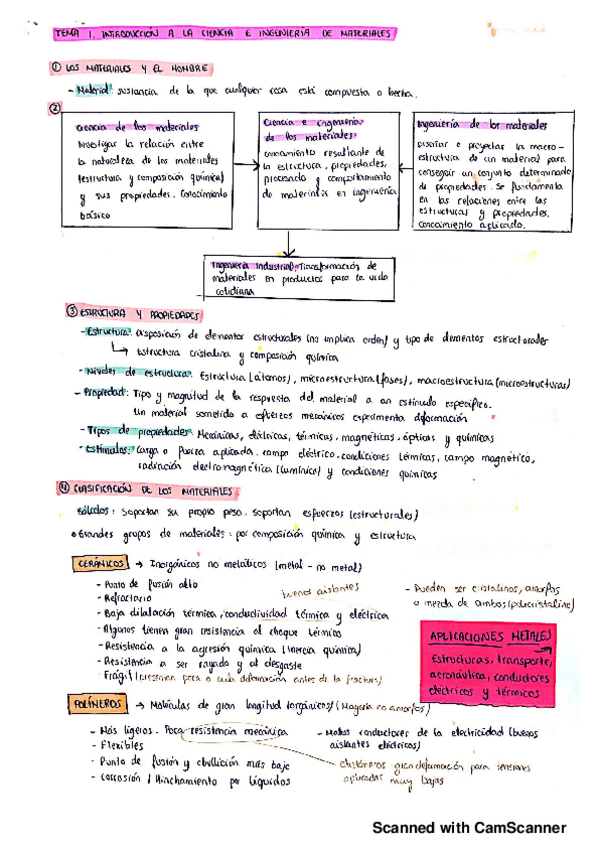 TEMA 1. INTRODUCCIÓN A LA CIENCIA E INGENIERÍA DE MATERIALES
① LOS MATERIALES Y EL HOMBRE
- Material: sustancia de la que cualquier cosa está compuesta o hecha.
②
Ciencia de los materiales
Investigar la relación entre
la naturaleza de los materiales
(estructura y composición química)
y sus propiedades. Conocimiento
básico
Ciencia e ingeniería
de los materiales:
conocimiento resultante de
la estructura, propiedades,
procesado y comportamiento
de materiales en ingeniería
Ingeniería de los materiales
Diseñar o proyectar la macro-
estructura de un material para
conseguir un conjunto determinado
de propiedades. Se fundamenta
en las relaciones entre las
estructuras y propiedades.
conocimiento aplicado.
Ingeniería Industrial: Transformación de
materiales en productos para la vida
cotidiana
③ ESTRUCTURA Y PROPIEDADES
- Estructura: disposición de elementos estructurales (no implica orden) y tipo de elementos estructurales
Estructura cristalina y composición química
- Niveles de estructura: Estructura (átomos), microestructura (fases), macroestructura (microestructuras)
- Propiedad: Tipo y magnitud de la respuesta del material a un estímulo específico.
Un material sometido a esfuerzos mecánicos experimenta deformación
- Tipos de propiedades: Mecánicas, eléctricas, térmicas, magnéticas, ópticas y químicas
- Estímulos: Carga o fuerza aplicada, campo eléctrico, condiciones térmicas, campo magnético,
radiación electromagnética (lumínica) y condiciones químicas
④ CLASIFICACIÓN DE LOS MATERIALES
Sólidos: Soportan su propio peso. soportan esfuerzos (estructurales)
• Grandes grupos de materiales: por composición química y estructura
CERÁMICOS → Inorgánicos no metálicos (metal - no metal)
- Punto de fusión alto
- Refractario
buenos aislantes
- Baja dilatación térmica, conductividad térmica y eléctrica
- Algunos tienen gran resistencia al choque térmico
- Resistencia a la agresión química (inercia química)
- Resistencia a ser rayado y al desgaste
- Frágil (presentan poca o nula deformación antes de la fractura)
- Pueden ser cristalinos, amorfos
o mezcla de ambos (policristalino)
APLICACIONES METALES
Estructuras, transporte,
aeronáutica, conductores
eléctricos y térmicos
POLÍMEROS → Moléculas de gran longitud (orgánicos) (Mayoría no amorfos)
- Más ligeros. Poca resistencia mecánica
- Flexibles
- Punto de fusión y ebullición más bajo
- Corrosión / Hinchamiento por líquidos
- Malos conductores de la electricidad (buenos
aislantes eléctricos)
elastómeros gran deformación para tensiones
aplicadas muy bajas
Scanned with CamScanner